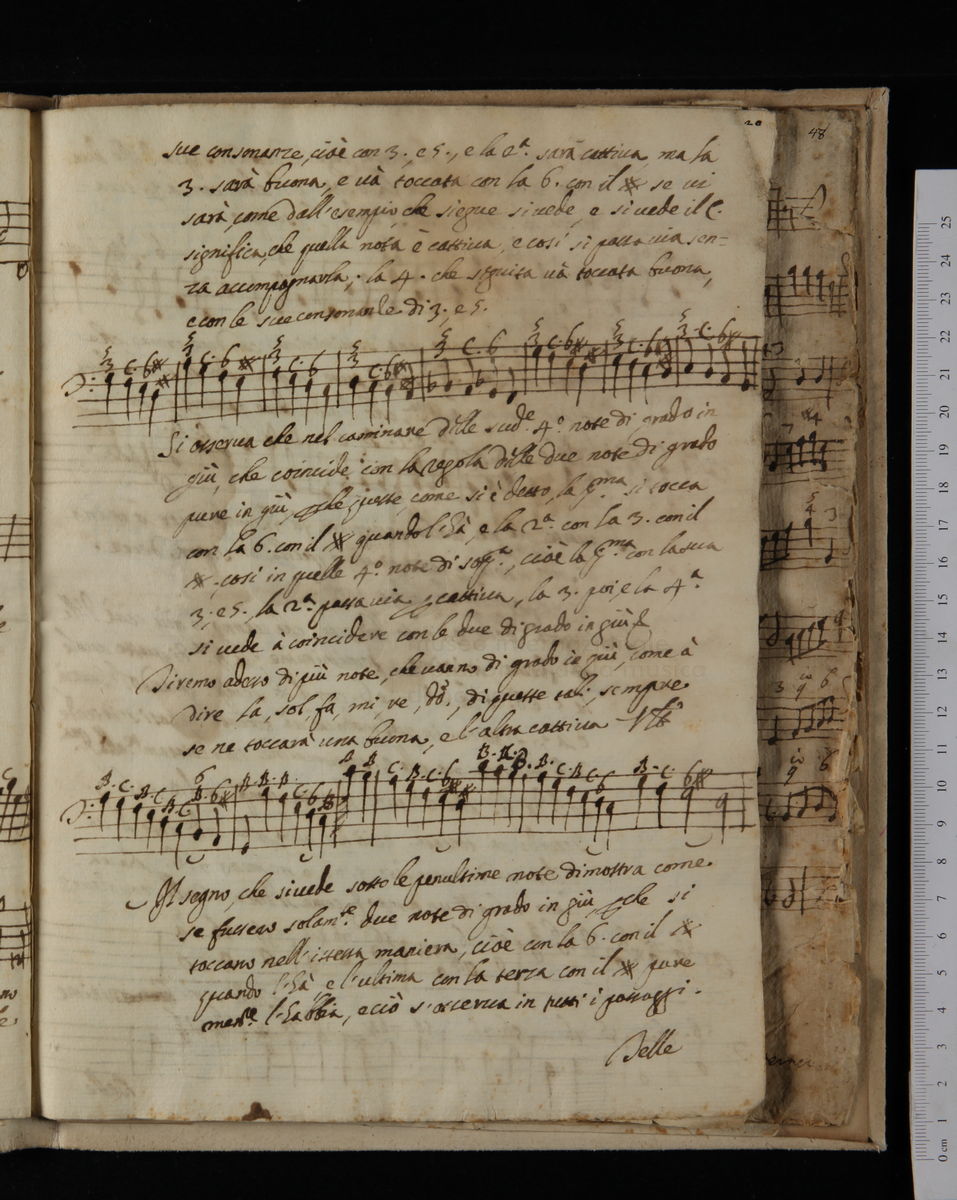 20
48
sue consonanze, cioè con 3. e 5., e la 2ª. sarà cattiva, ma la
3. sarà buona, e và toccata con la 6. con il # se vi
sarà, come dall'esempio, che siegue si vede, e si vede il C.
significa, che quella nota è cattiva, e così si passa via sen=
za accompagnarla; la 4. che seguita và toccata buona,
e con le sue consonanze di 3, e 5.
Si osserva che nel caminare delle sudᵉ. 4º. note di grado in
giù, che coincide con la regola delle due note di grado
pure in giù, che queste, come si è detto, la pᵐᵃ si tocca
con la 6. con il # quando l'hà, e la 2ª. con la 3. con il
#, così in quelle 4º note di sopª., cioè la pᵐᵃ. con la sua
3, e 5, la 2ª. passa via cattiva, la 3. poi, e la 4ª.
si vede à coincidere con le due di grado in giù.
Diremo adesso di più note, che vanno di grado in giù, come à
dire la, sol, fa, mi, re, dò, di queste tali, sempre
se ne toccarà una buona, e l'altra cattiva
B. C. B. C. B. C
Il segno, che si vede sotto le penultime note dimostra come
se fussero solamᵗᵉ. due note di grado in giù, che si
toccano nell'istessa maniera, cioè con la 6. con il #
quando l'hà, e l'ultima con la terza con il # pure
menᵗʳᵉ l'habbia, e ciò s'osserva in tutti i passaggi.
Delle